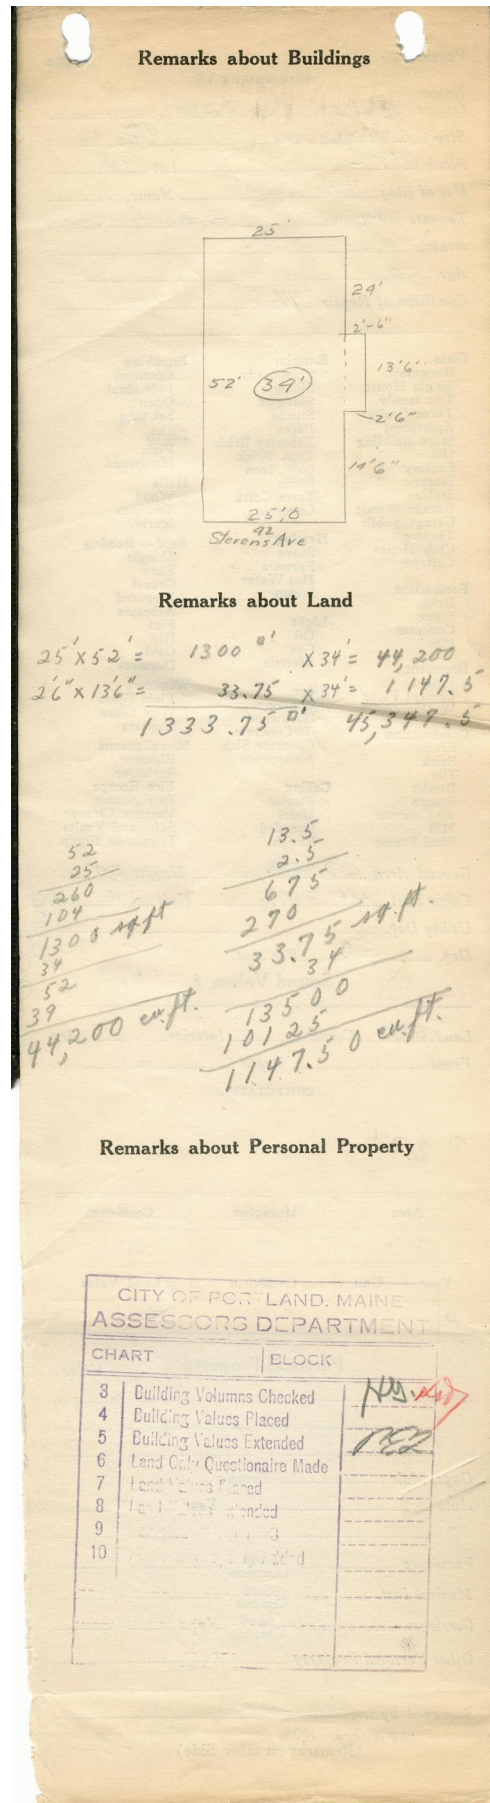 Remarks about Buildings
25'
24'
2'-6"
13'6"
52' 34'
2'6"
14'6"
25'0
92
Stevens Ave
Remarks about Land
25' x 52' = 1300 □' x 34' = 44,200
2'6" x 13'6" = 33.75 x 34' = 1147.5
1333.75 □' 45,347.5
52
25
260
104
1300 sq ft
34
52
39
44,200 cu. ft.
13.5
2.5
675
270
33.75 sq. ft.
34
13500
10125
1147.50 cu. ft.
Remarks about Personal Property
CITY OF PORTLAND, MAINE
ASSESSORS DEPARTMENT
CHART BLOCK
3 Building Volumns Checked
4 Building Values Placed
5 Building Values Extended
6 Land Only Questionaire Made
7 Land Values Placed
8
9
10